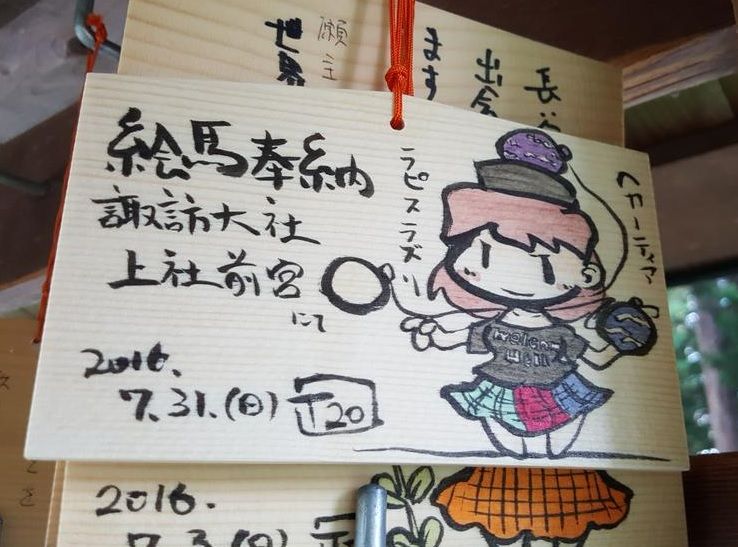 絵馬奉納
諏訪大社
上社前宮
にて
2016.
7.31.(日)
正20
ラピスラズリ
ヘカーティア
Welcome
Hell
願主
世界
ます
出会
長
2016.
7.3.(日)